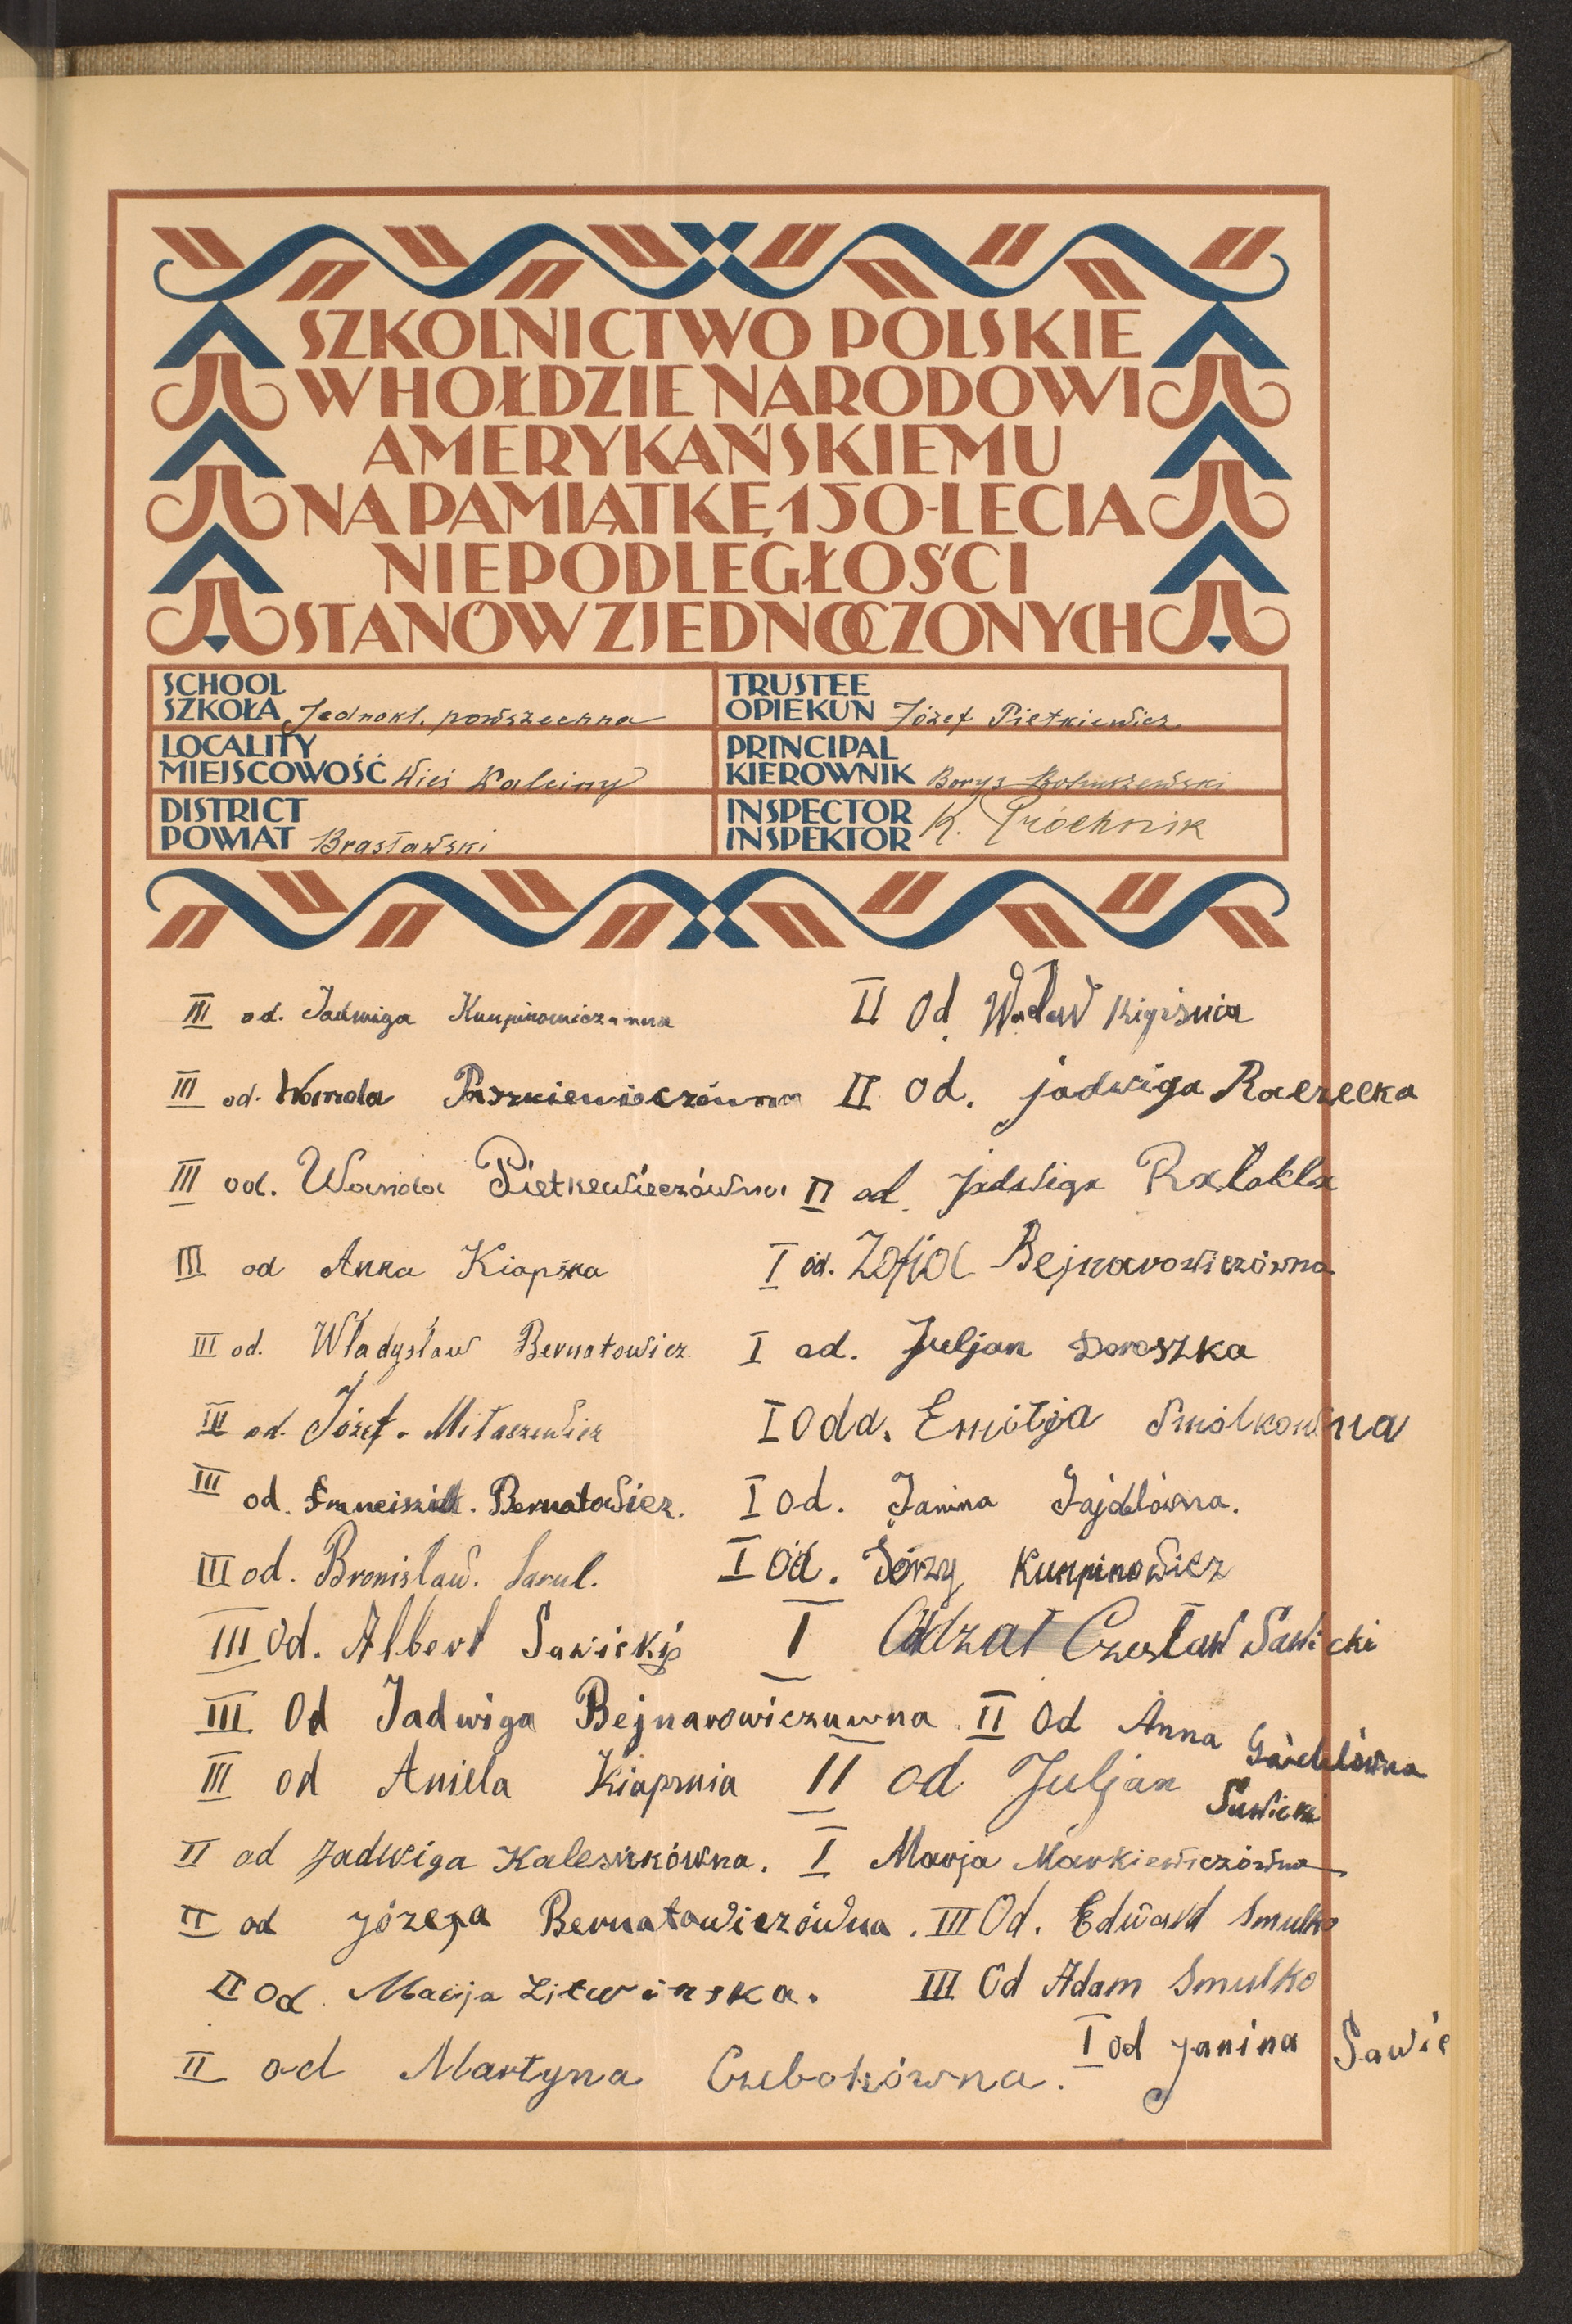 SZKOLNICTWO POLSKIE
W HOŁDZIE NARODOWI
AMERYKAŃSKIEMU
NA PAMIĄTKĘ 150-LECIA
NIEPODLEGŁOŚCI
STANÓW ZJEDNOCZONYCH
SCHOOL
SZKOŁA Jednokl. powszechna
LOCALITY
MIEJSCOWOŚĆ Wieś Kalciny
DISTRICT
POWIAT Brasławski
TRUSTEE
OPIEKUN Józef Pietkiewicz
PRINCIPAL
KIEROWNIK Borys
INSPECTOR
INSPEKTOR K. Próchnik
III od. Jadwiga
III od. Wanda Paszkiewiczówna
III od. Wanda Pietkewiczówna
III od Anna Kiapśna
III od. Władysław Bernatowicz
III od. Józef. Mitaszewicz
III od. Bernatowicz.
III od. Bronisław. Sarul.
III Od. Albert Sawicki
III Od Jadwiga Bejnarowiczuwna
III od Aniela Kiaprnia
II od Jadwiga Kaleszkówna.
II od józefa Bernatowiczówna.
II od. Marja Litwinska.
II od Martyna Czebokówna.
II Od. Wacław
II od. jadwiga Raczecka
II od. jadwiga Ratakla
I od. Zofia Bejnarowiczówna
I od. Juljan Doroszka
I odd. Emilja Smolkowna
I od. Janina Gajdelówna.
I od. Jerzy Kunpinowicz
I Oddzał Czesław Sawicki
II Od Anna Gajdelówna
II od Juljan Sawicki
I Marja Markiewiczówna
III Od. Edward Smulko
III Od Adam Smulko
I od Janina Sawic